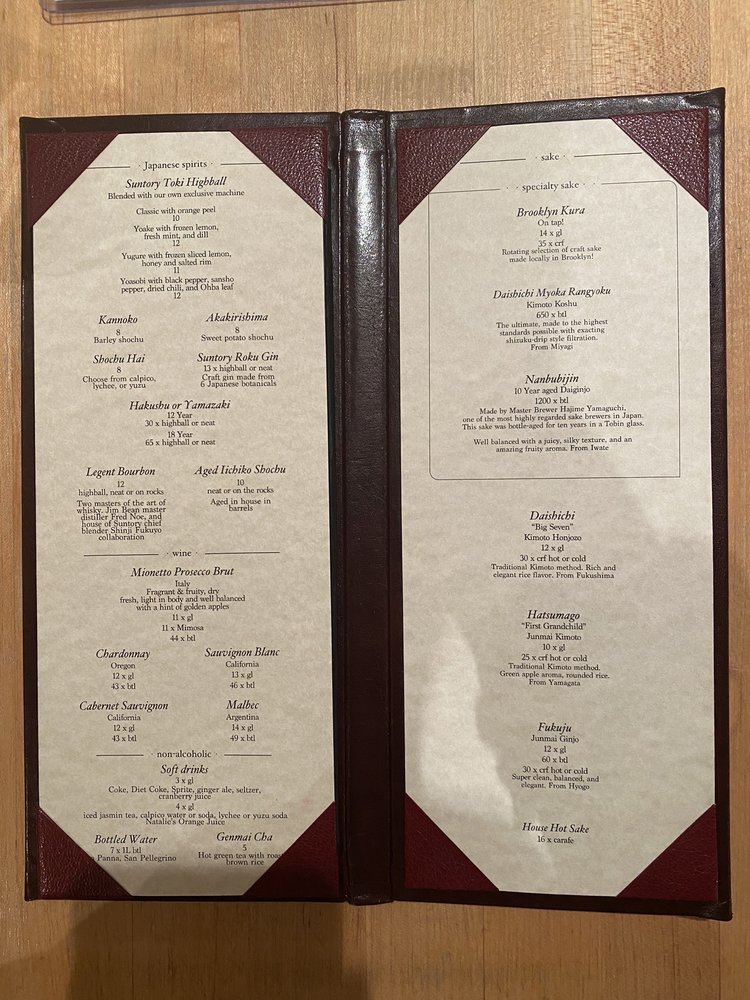 · Japanese spirits ·
Suntory Toki Highball
Blended with our own exclusive machine
Classic with orange peel
10
Yoake with frozen lemon,
fresh mint, and dill
12
Yugure with frozen sliced lemon,
honey and salted rim
11
Yoasobi with black pepper, sansho
pepper, dried chili, and Ohba leaf
12
Kannoko
8
Barley shochu
Akakirishima
8
Sweet potato shochu
Shochu Hai
8
Choose from calpico,
lychee, or yuzu
Suntory Roku Gin
13 x highball or neat
Craft gin made from
6 Japanese botanicals
Hakushu or Yamazaki
12 Year
30 x highball or neat
18 Year
65 x highball or neat
Legent Bourbon
12
highball, neat or on rocks
Two masters of the art of
whisky. Jim Bean master
distiller Fred Noe, and
house of Suntory chief
blender Shinji Fukuyo
collaboration
Aged Iichiko Shochu
10
neat or on the rocks
Aged in house in
barrels
· wine ·
Mionetto Prosecco Brut
Italy
Fragrant & fruity, dry
fresh, light in body and well balanced
with a hint of golden apples
11 x gl
11 x Mimosa
44 x btl
Chardonnay
Oregon
12 x gl
43 x btl
Sauvignon Blanc
California
13 x gl
46 x btl
Cabernet Sauvignon
California
12 x gl
43 x btl
Malbec
Argentina
14 x gl
49 x btl
· non-alcoholic ·
Soft drinks
3 x gl
Coke, Diet Coke, Sprite, ginger ale, seltzer,
cranberry juice
4 x gl
iced jasmin tea, calpico water or soda, lychee or yuzu soda
Natalie's Orange Juice
Bottled Water
7 x 1L btl
Panna, San Pellegrino
Genmai Cha
5
Hot green tea with roas
brown rice
· sake ·
· specialty sake ·
Brooklyn Kura
On tap!
14 x gl
35 x crf
Rotating selection of craft sake
made locally in Brooklyn!
Daishichi Myoka Rangyoku
Kimoto Koshu
650 x btl
The ultimate, made to the highest
standards possible with exacting
shizuku-drip style filtration.
From Miyagi
Nanbubijin
10 Year aged Daiginjo
1200 x btl
Made by Master Brewer Hajime Yamaguchi,
one of the most highly regarded sake brewers in Japan.
This sake was bottle-aged for ten years in a Tobin glass.
Well balanced with a juicy, silky texture, and an
amazing fruity aroma. From Iwate
Daishichi
"Big Seven"
Kimoto Honjozo
12 x gl
30 x crf hot or cold
Traditional Kimoto method. Rich and
elegant rice flavor. From Fukushima
Hatsumago
"First Grandchild"
Junmai Kimoto
10 x gl
25 x crf hot or cold
Traditional Kimoto method.
Green apple aroma, rounded rice.
From Yamagata
Fukuju
Junmai Ginjo
12 x gl
60 x btl
30 x crf hot or cold
Super clean, balanced, and
elegant. From Hyogo
House Hot Sake
16 x carafe